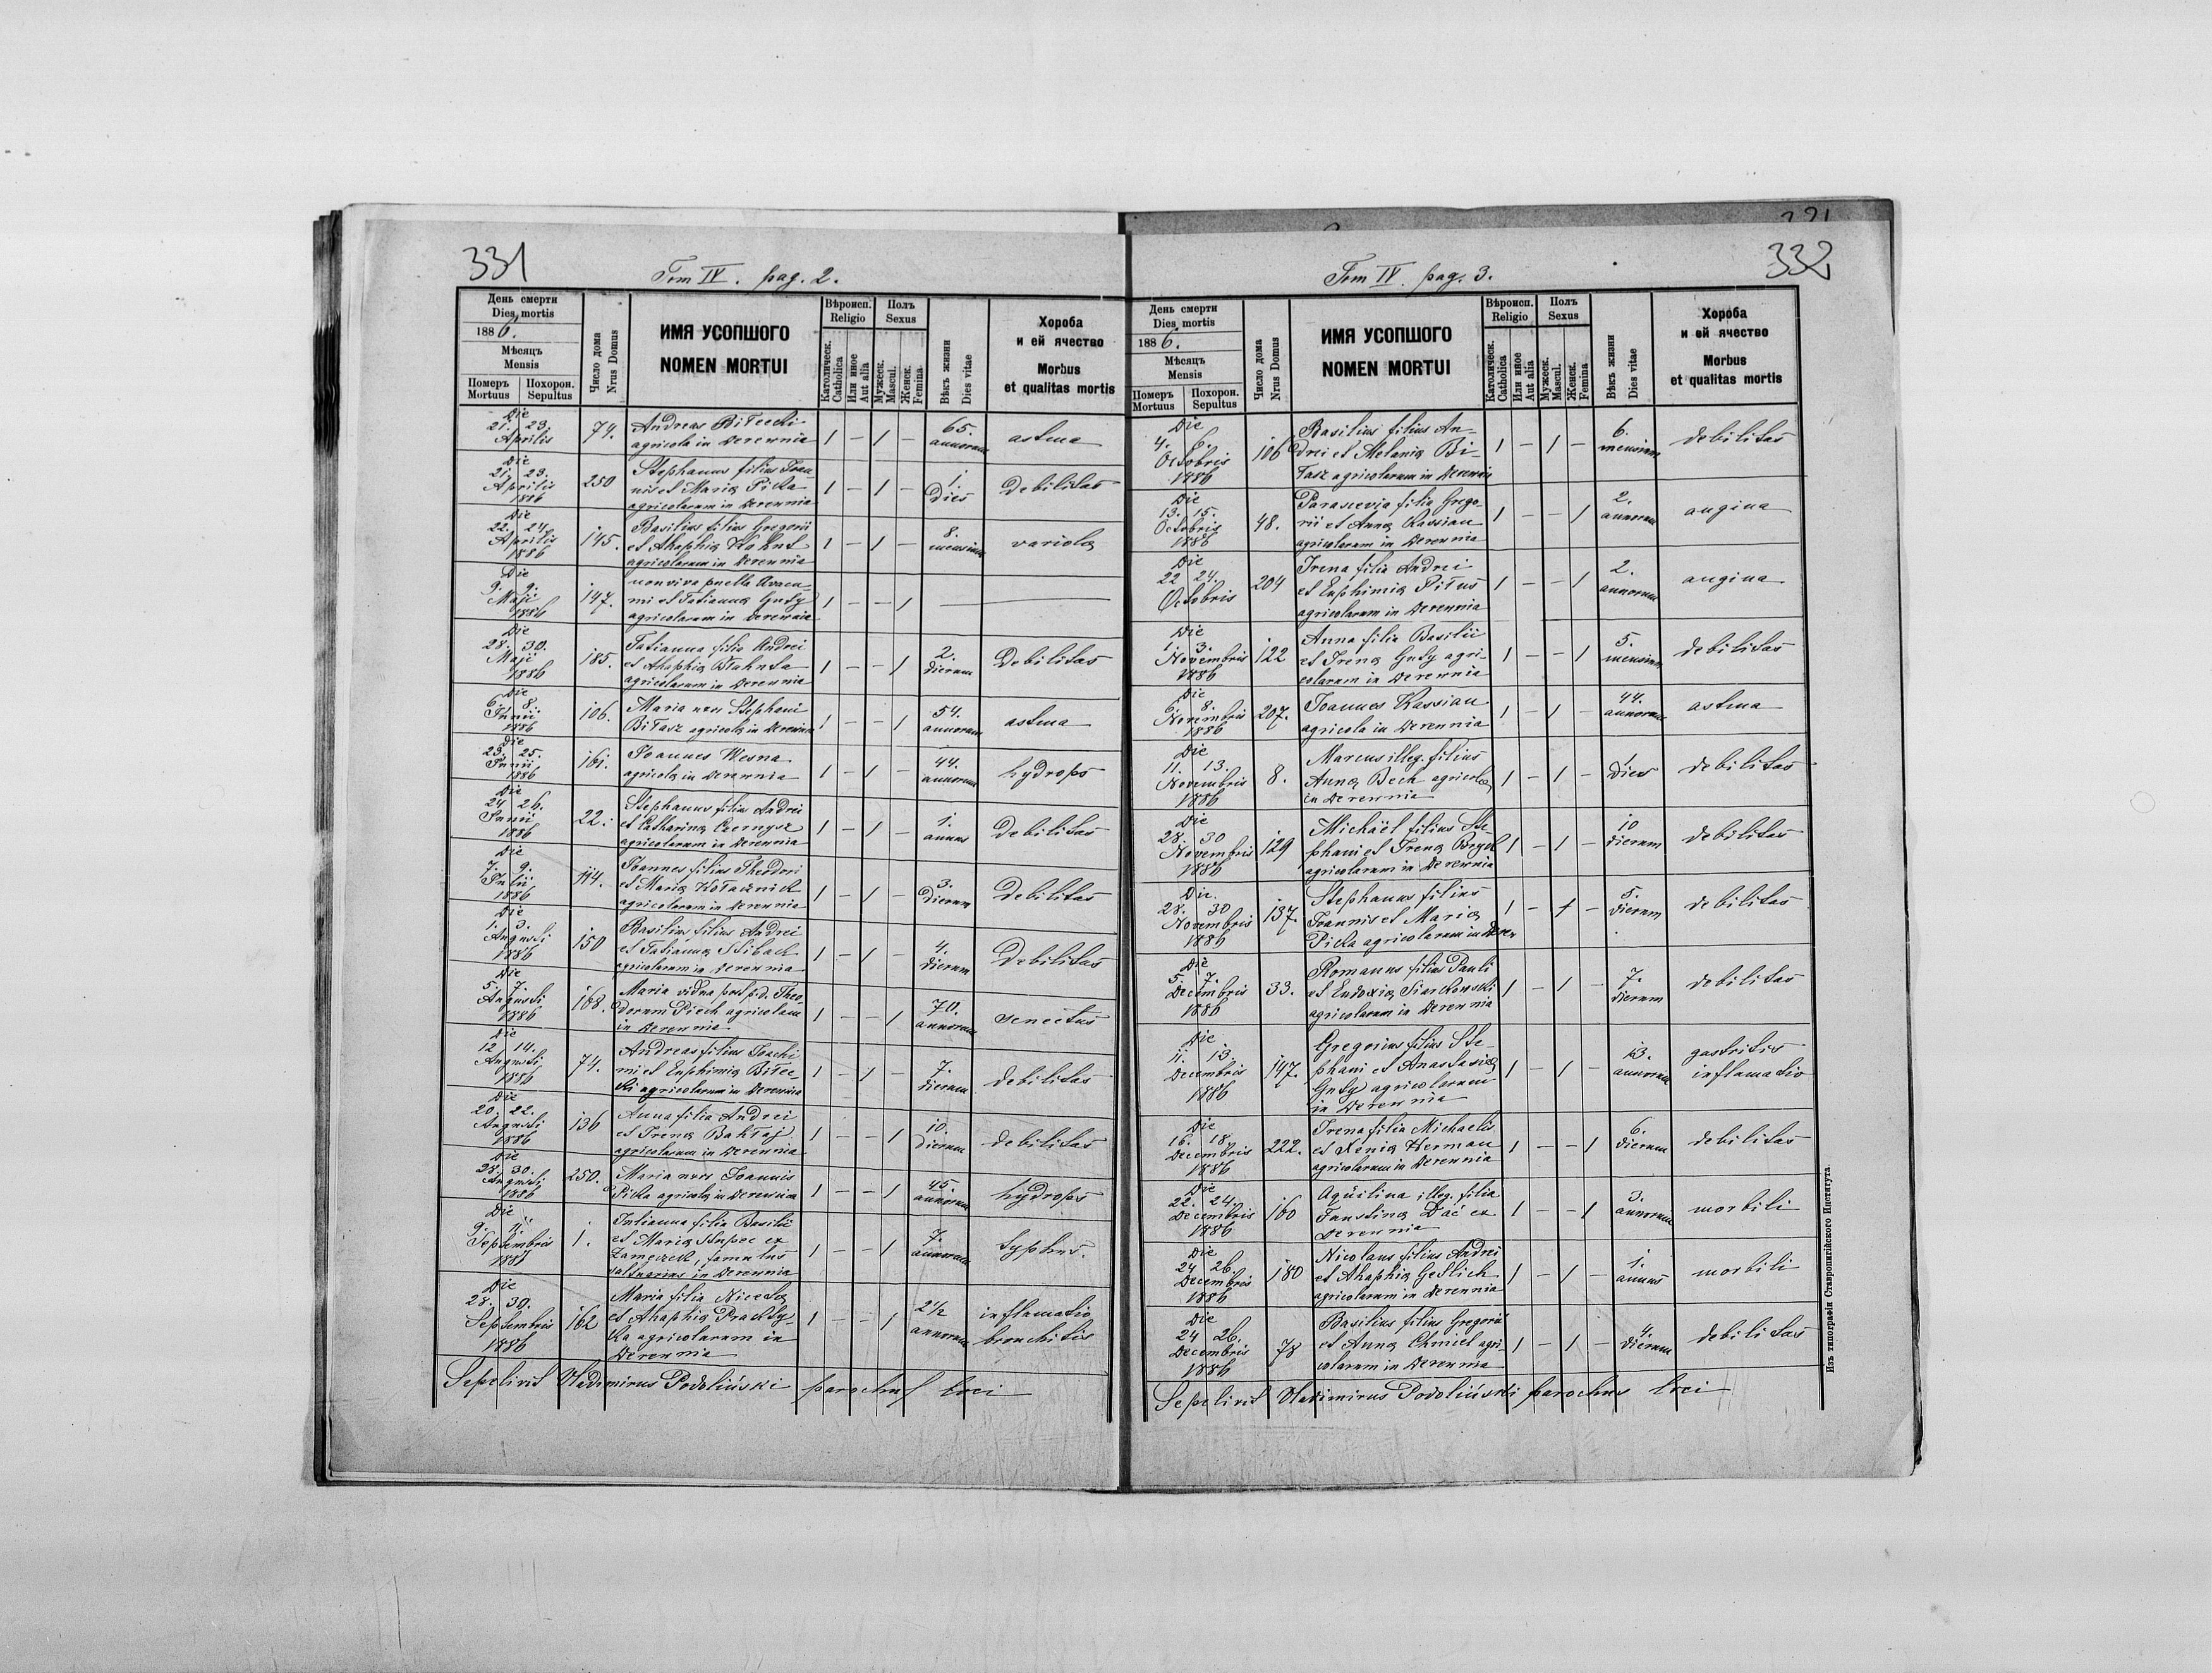 331
Tom IV. pag. 2.
День смерти
Dies mortis
1886.
Мѣсяцъ
Mensis
Померъ Похорон.
Mortuus Sepultus
Число дома
Nrus Domus
ИМЯ УСОПШОГО
NOMEN MORTUI
Вѣроисп.
Religio
Католическ.
Catholica
Или иное
Aut alia
Полъ
Sexus
Мужеск.
Mascul.
Женск.
Femina
Вѣкъ жизни
Dies vitae
Хороба
и ей ячество
Morbus
et qualitas mortis
Die
21. 23. 74. Andreas Biłecki 65.
Aprilis agricola in Derewnia 1 – 1 – annorum astma
Die
21. 23. 250 Stephanus filius Joan- 1
Aprilis nis et Maria Picka 1 – 1 – Dies Debilitas
1886 agricolarum in Derewnia
Die
22. 24. 145. Basilius filius Gregorii 8.
Aprilis et Ahaphia Kohut 1 – 1 – mensium variola
1886 agricolarum in Derewnia
Die
9. 9. 147. non viva puella
Maji mi et Tatianna Guty 1 – – 1 —
1886 agricolarum in Derewnia
Die
28. 30. 185. Tatianna filia Andrei 2.
Maji et Ahaphia 1 – – 1 dierum Debilitas
1886 agricolarum in Derewnia
Die
6. 8. 106. Maria uxor Stephani 54.
Junii Biłasz agricola in Derewnia 1 – – 1 annorum astma
1886
Die
23. 25. 161. Joannes Wesna 44.
Junii agricola in Derewnia 1 – 1 – annorum hydrops
1886
Die
24 26. 22. Stephanus filius Andrei 1.
Junii et Catharina Czernysz 1 – 1 – annus Debilitas
1886 agricolarum in Derewnia
Die
7. 9. 114. Joannes filius Theodori 3.
Julii et Maria Kołacznick 1 – 1 – Dierum Debilitas
1886 agricolarum in Derewnia
Die
1. 3. 150 Basilius filius Andrei 4.
Augusti et Tatianna 1 – 1 – dierum Debilitas
1886 agricolarum in Derewnia
Die
5. 7. 168. Maria vidua post p.d. Theo- 70.
Augusti dorum Piech agricolam 1 – – 1 annorum senectus
1886 in Derewnia
Die
12 14. 74. Andreas filius Joachi 7.
Augusti mi et Euphimia Biłec- 1 – 1 – dierum debilitas
1886 ki agricolarum in Derewnia
Die
20. 22. 136 Anna filia Andrei 10.
Augusti et Irena Bakłaj 1 – – 1 dierum debilitas
1886 agricolarum in Derewnia
Die
28. 30. 250. Maria uxor Joannis 45.
Augusti Picka agricola in Derewnia 1 – – 1 annorum hydrops
1886
Die
9. 11. 1. Julianna filia Basilii 7.
Septembris et Maria Stupec ex 1 – – 1 annorum typhus.
1886 Zameczek, famulus
saltuarius in Derewnia
Die
28. 30. 162 Maria filia Niceta 2 1/2 inflamatio
Septembris et Ahaphia Prackty- 1 – – 1 annorum bronchitis
1886 ka agricolarum in
Derewnia
Sepelivit Vladimirus Podoliński parochus loci
332
Tom IV. pag. 3.
День смерти
Dies mortis
1886.
Мѣсяцъ
Mensis
Померъ Похорон.
Mortuus Sepultus
Число дома
Nrus Domus
ИМЯ УСОПШОГО
NOMEN MORTUI
Вѣроисп.
Religio
Католическ.
Catholica
Или иное
Aut alia
Полъ
Sexus
Мужеск.
Mascul.
Женск.
Femina
Вѣкъ жизни
Dies vitae
Хороба
и ей ячество
Morbus
et qualitas mortis
Die
4. 6. 106 Basilius filius An- 6.
Octobris drei et Melania Bi- 1 – 1 – mensium debilitas
1886 łasz agricolarum in Derewnia
Die
13. 15. 48. Parascevia filia Grego- 2.
Octobris rii et Anna Kassian 1 – – 1 annorum angina
1886 agricolarum in Derewnia
Die
22 24. 204 Irena filia Andrei 2.
Octobris et Euphimia Pitus 1 – – 1 annorum angina
agricolarum in Derewnia
Die
1. 3. 122 Anna filia Basilii 5.
Novembris et Irena Guty agri- 1 – – 1 mensium debilitas
1886 colarum in Derewnia
Die
6. 8. 207. Joannes Kassian 44.
Novembris agricola in Derewnia 1 – 1 – annorum astma
1886
Die
11. 13. 8. Marcus illeg. filius 1
Novembris Anna Bech agricola 1 – 1 – Dies debilitas
1886 in Derewnia
Die
28. 30 129 Michaël filius Ste- 10
Novembris phani et Irena 1 – 1 – dierum debilitas
1886 agricolarum in Derewnia
Die.
28. 30 137. Stephanus filius 5.
Novembris Joannis et Maria 1 – 1 – dierum debilitas
1886 Picka agricolarum in Derew
Die
5. 7. 33. Romanus filius Pauli 7.
Decembris et Eudoxia Siarkowski 1 – 1 – dierum debilitas
1886 agricolarum in Derewnia
Die
11. 13. 147. Gregorius filius Ste- 13. gastritis
Decembris phani et Anastasia 1 – 1 – annorum inflamatio
1886 Guty agricolarum
in Derewnia
Die
16. 18. 222. Irena filia Michaelis 6.
Decembris et Xenia Herman 1 – – 1 dierum debilitas
1886 agricolarum in Derewnia
Die
22. 24. 160 Aquilina illeg. filia 3.
Decembris Faustina Dać ex 1 – – 1 annorum morbili
1886 Derewnia
Die
24 26. 180 Nicolaus filius Andrei 1.
Decembris et Ahaphia Getlich 1 – 1 – annus morbili
1886 agricolarum in Derewnia
Die
24 26. 78 Basilius filius Gregorii 4.
Decembris et Anna Chmiel agri- 1 – 1 – dierum debilitas
1886 colarum in Derewnia
Sepelivit Vladimirus Podoliński parochus loci
Изъ типографіи Ставропигійского Института.